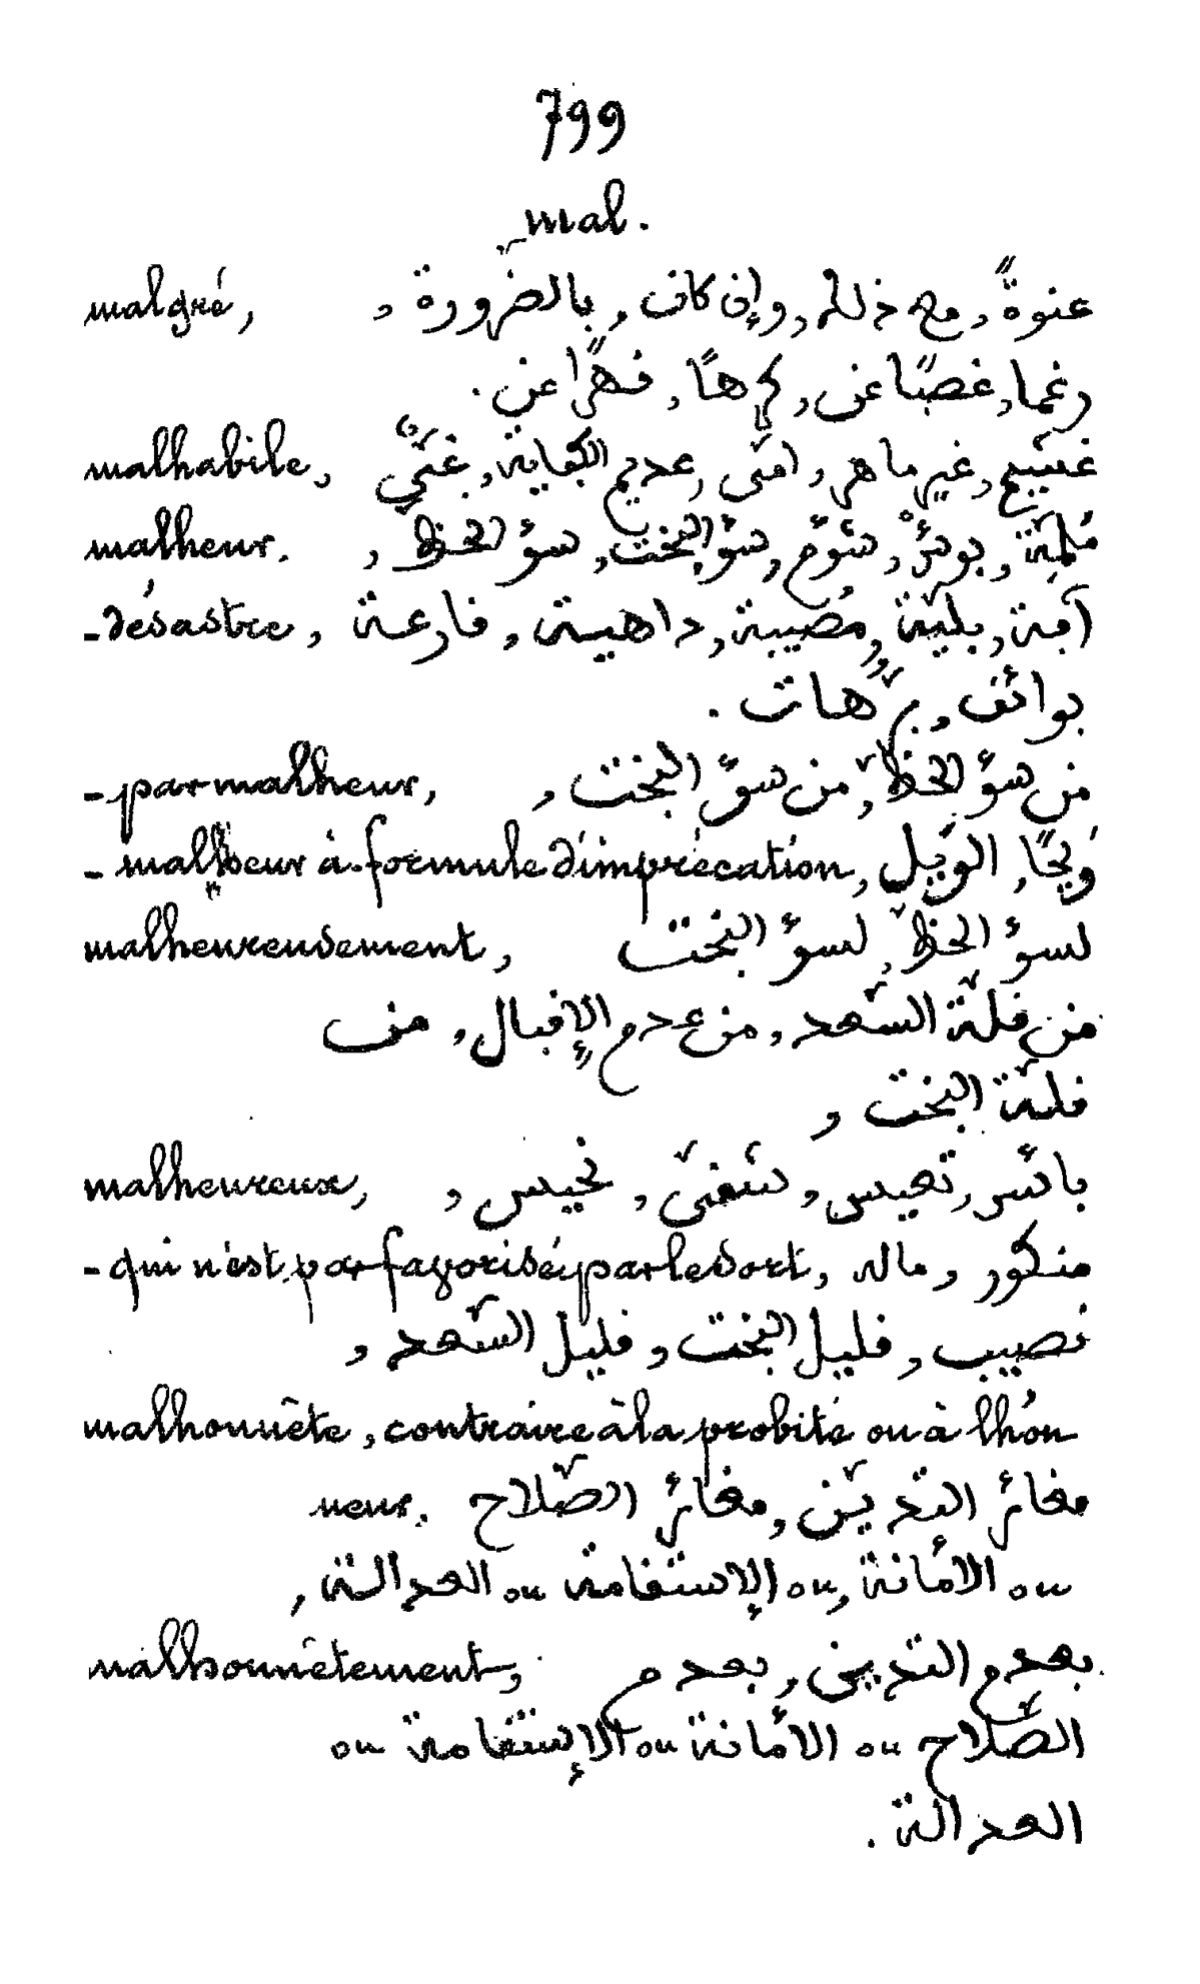 799
mal.
malgré, عنوةً, مع ذلك, وإن كان, بالضرورة,
رغما, غصبًا عن, كرهًا, قهرًا عن.
malhabile, غشيم, غير ماهر, امّى, عديم الكفاية, غبّي
malheur. مُلمّة, بوسٌ, شوم, سؤ البخت, سؤ الحظ,
-désastre, آفة, بليّة, مُصيبة, داهية, قارعة,
بوائق, برّهات.
-par malheur, من سؤ الحظّ, من سؤ البخت,
-malheur à. formule d'imprécation, وَيحًا, الويل
malheureusement, لسؤ الحظّ, لسؤ البخت
من قلّة السّعد, من عدم الإقبال, من
قلّة البخت,
malheureux, بائس, تعيس, شقىّ, نحيس,
-qui n'est pas favorisé par le sort, منكور, ماله
نصيب, قليل البخت, قليل السّعد,
malhonnête, contraire à la probité ou à l'hon
neur. مغائر التديّن, مغائر الصّلاح
ou الأمانة, ou الإستقامة ou العدالة,
malhonnêtement, بعدم التديّن, بعدم
الصّلاح ou الأمانة ou الإستقامة ou
العدالة.